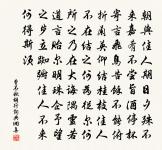 朝與佳人期日夕殊不
來嘉肴不嘗旨酒停杯
寄言飛鳥告余不能俯
折蘭英仰結桂枝佳人
不在結之何為從爾何
所之乃在大海隅靈若
道言貽爾明珠企予望
之步立踟躕佳人不來
何得斯須
曹丕秋胡行詞典網